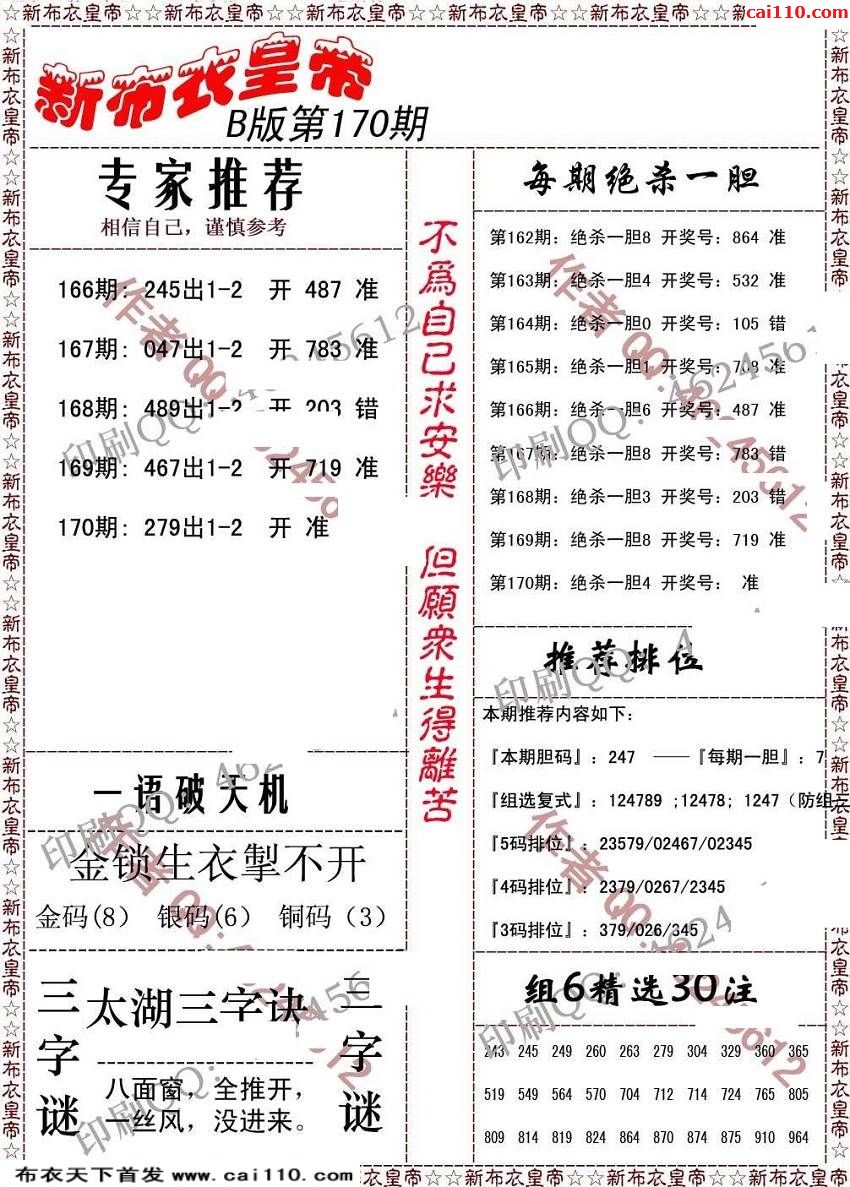 ☆☆新布衣皇帝☆☆新布衣皇帝☆☆新布衣皇帝☆☆新布衣皇帝☆☆新布衣皇帝☆☆新
cai110.com
新布衣皇帝
B版第170期
专家推荐
相信自己，谨慎参考
166期: 245出1-2 开 487 准
167期: 047出1-2 开 783 准
168期: 489出1-2 开 203 错
169期: 467出1-2 开 719 准
170期: 279出1-2 开 准
一语破天机
金锁生衣掣不开
金码(8) 银码(6) 铜码（3）
三字谜
太湖三字诀
八面窗，全推开，
一丝风，没进来。
三字谜
不爲自己求安樂 但願衆生得離苦
每期绝杀一胆
第162期: 绝杀一胆8 开奖号: 864 准
第163期: 绝杀一胆4 开奖号: 532 准
第164期: 绝杀一胆0 开奖号: 105 错
第165期: 绝杀一胆1 开奖号: 708 准
第166期: 绝杀一胆6 开奖号: 487 准
第167期: 绝杀一胆8 开奖号: 783 错
第168期: 绝杀一胆3 开奖号: 203 错
第169期: 绝杀一胆8 开奖号: 719 准
第170期: 绝杀一胆4 开奖号: 准
推荐排位
本期推荐内容如下:
『本期胆码』: 247 ——『每期一胆』: 7
『组选复式』: 124789 ;12478; 1247（防组三
『5码排位』: 23579/02467/02345
『4码排位』: 2379/0267/2345
『3码排位』: 379/026/345
组6精选30注
243 245 249 260 263 279 304 329 360 365
519 549 564 570 704 712 714 724 765 805
809 814 819 824 864 870 874 875 910 964
布衣天下首发 www.cai110.com
衣皇帝☆☆新布衣皇帝☆☆新布衣皇帝☆☆新布衣皇帝☆☆
印刷QQ: 4624561
作者QQ: 4624561